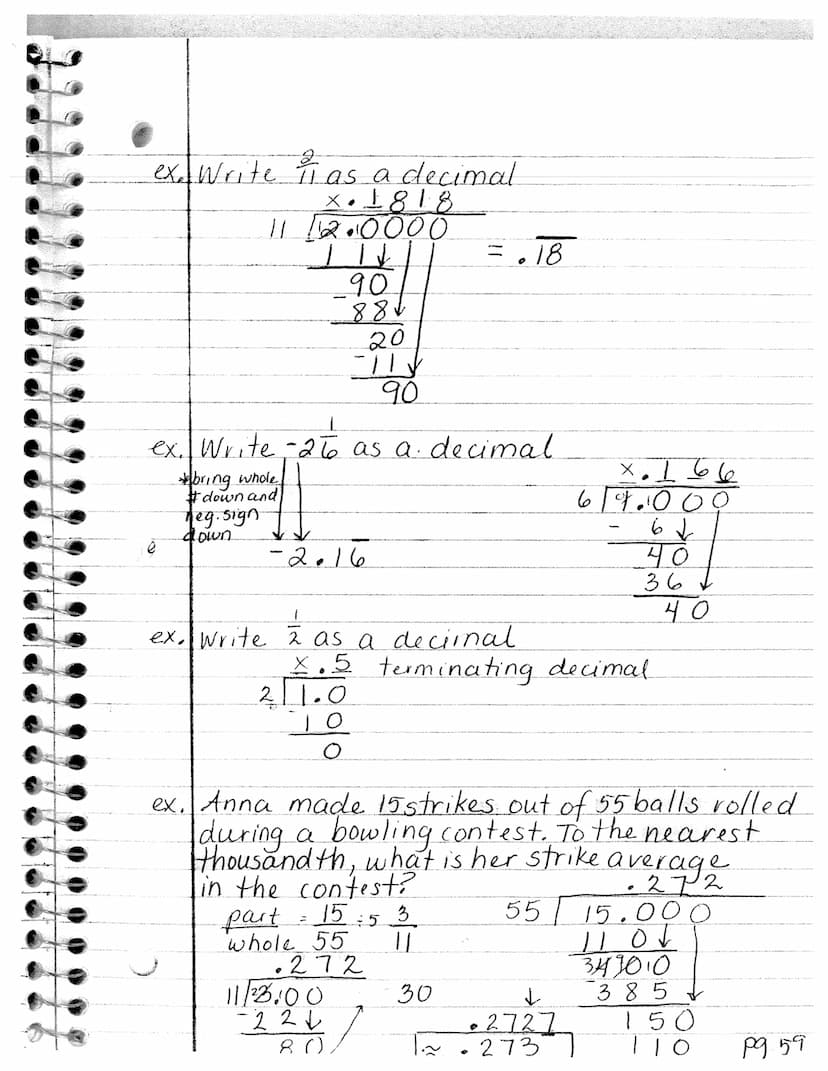 ex. Write 2/11 as a decimal
x.1818
11 2.0000
1 1
90
-88
20
-11
90
= .18
ex. Write -2 1/6 as a decimal
*bring whole
# down and
neg. sign
down
-2.16
x.166
6 1.000
- 6
40
36
40
ex. Write 1/2 as a decimal
x.5 terminating decimal
2 1.0
10
0
ex. Anna made 15 strikes out of 55 balls rolled
during a bowling contest. To the nearest
thousandth, what is her strike average
in the contest?
part = 15 ÷5 3
whole 55 11
.272
11 3.00
-22
80
30
.2727
≈ .273
.272
55 15.000
11 0
-385
150
110
pg 59